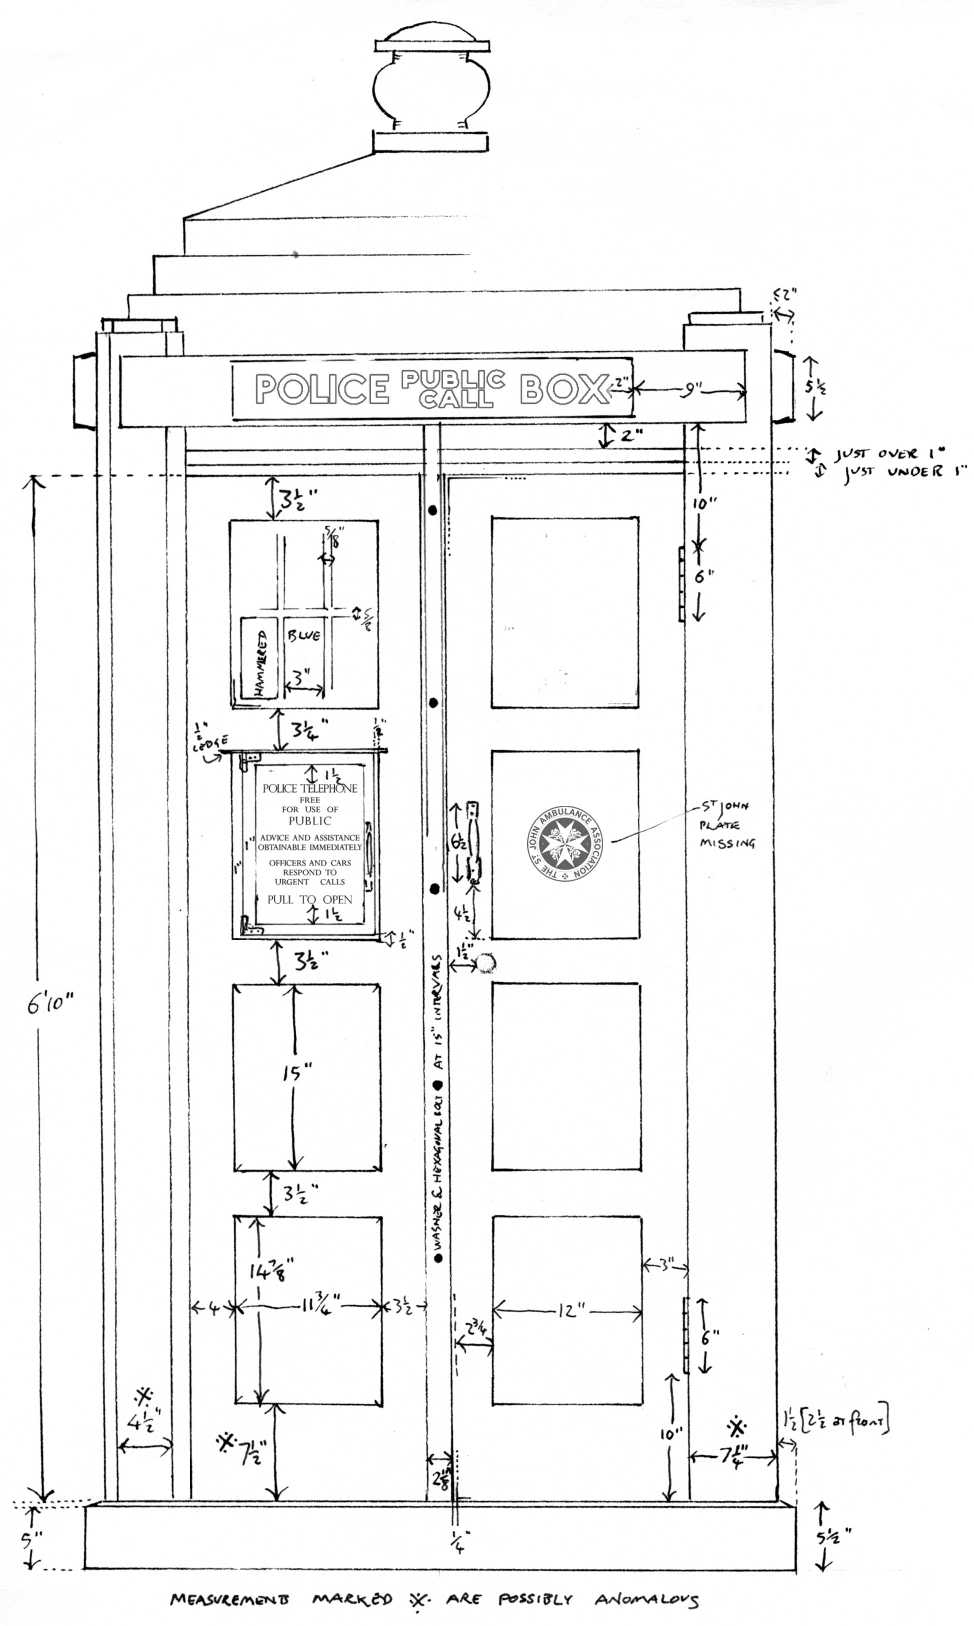 2"
5½
POLICE PUBLIC CALL BOX
2"
9"
2"
JUST OVER 1"
JUST UNDER 1"
3½"
10"
5/8"
6"
5/8
HAMMERED
BLUE
3"
3¼"
½"
½"
LEDGE
1½
POLICE TELEPHONE
FREE
FOR USE OF
PUBLIC
ADVICE AND ASSISTANCE
OBTAINABLE IMMEDIATELY
OFFICERS AND CARS
RESPOND TO
URGENT CALLS
PULL TO OPEN
1½
6½
THE ST JOHN AMBULANCE ASSOCIATION
ST JOHN
PLATE
MISSING
4½
½"
1½"
3½"
6'10"
15"
WASHER & HEXAGONAL BOLT AT 15" INTERVALS
3½"
14⅞"
3"
4
11¾"
3½
12"
2¾
6"
※
4½"
※ 7½"
10"
※
7¼"
1½ [2½ at front]
2⅛
5"
¼"
5½"
MEASUREMENTS MARKED ※ ARE POSSIBLY ANOMALOUS